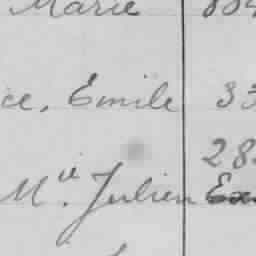 Marie 884
ce, Emile 33
28
Mll. Julien Ex